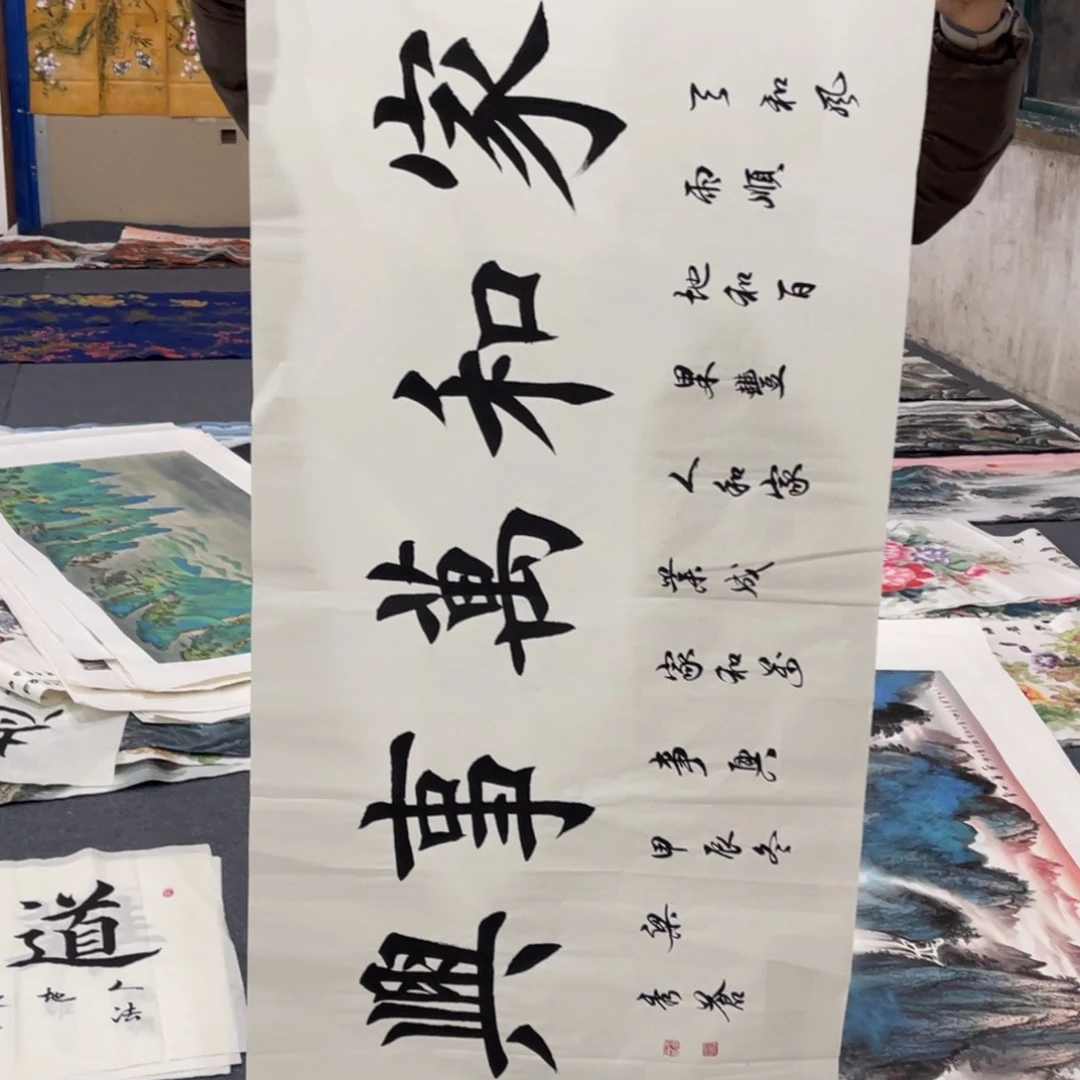 家和萬事興
天和風
雨順
地和百
果豐
人和家
業成
家和萬
事興
甲辰冬
梁
秀
道
人法
地